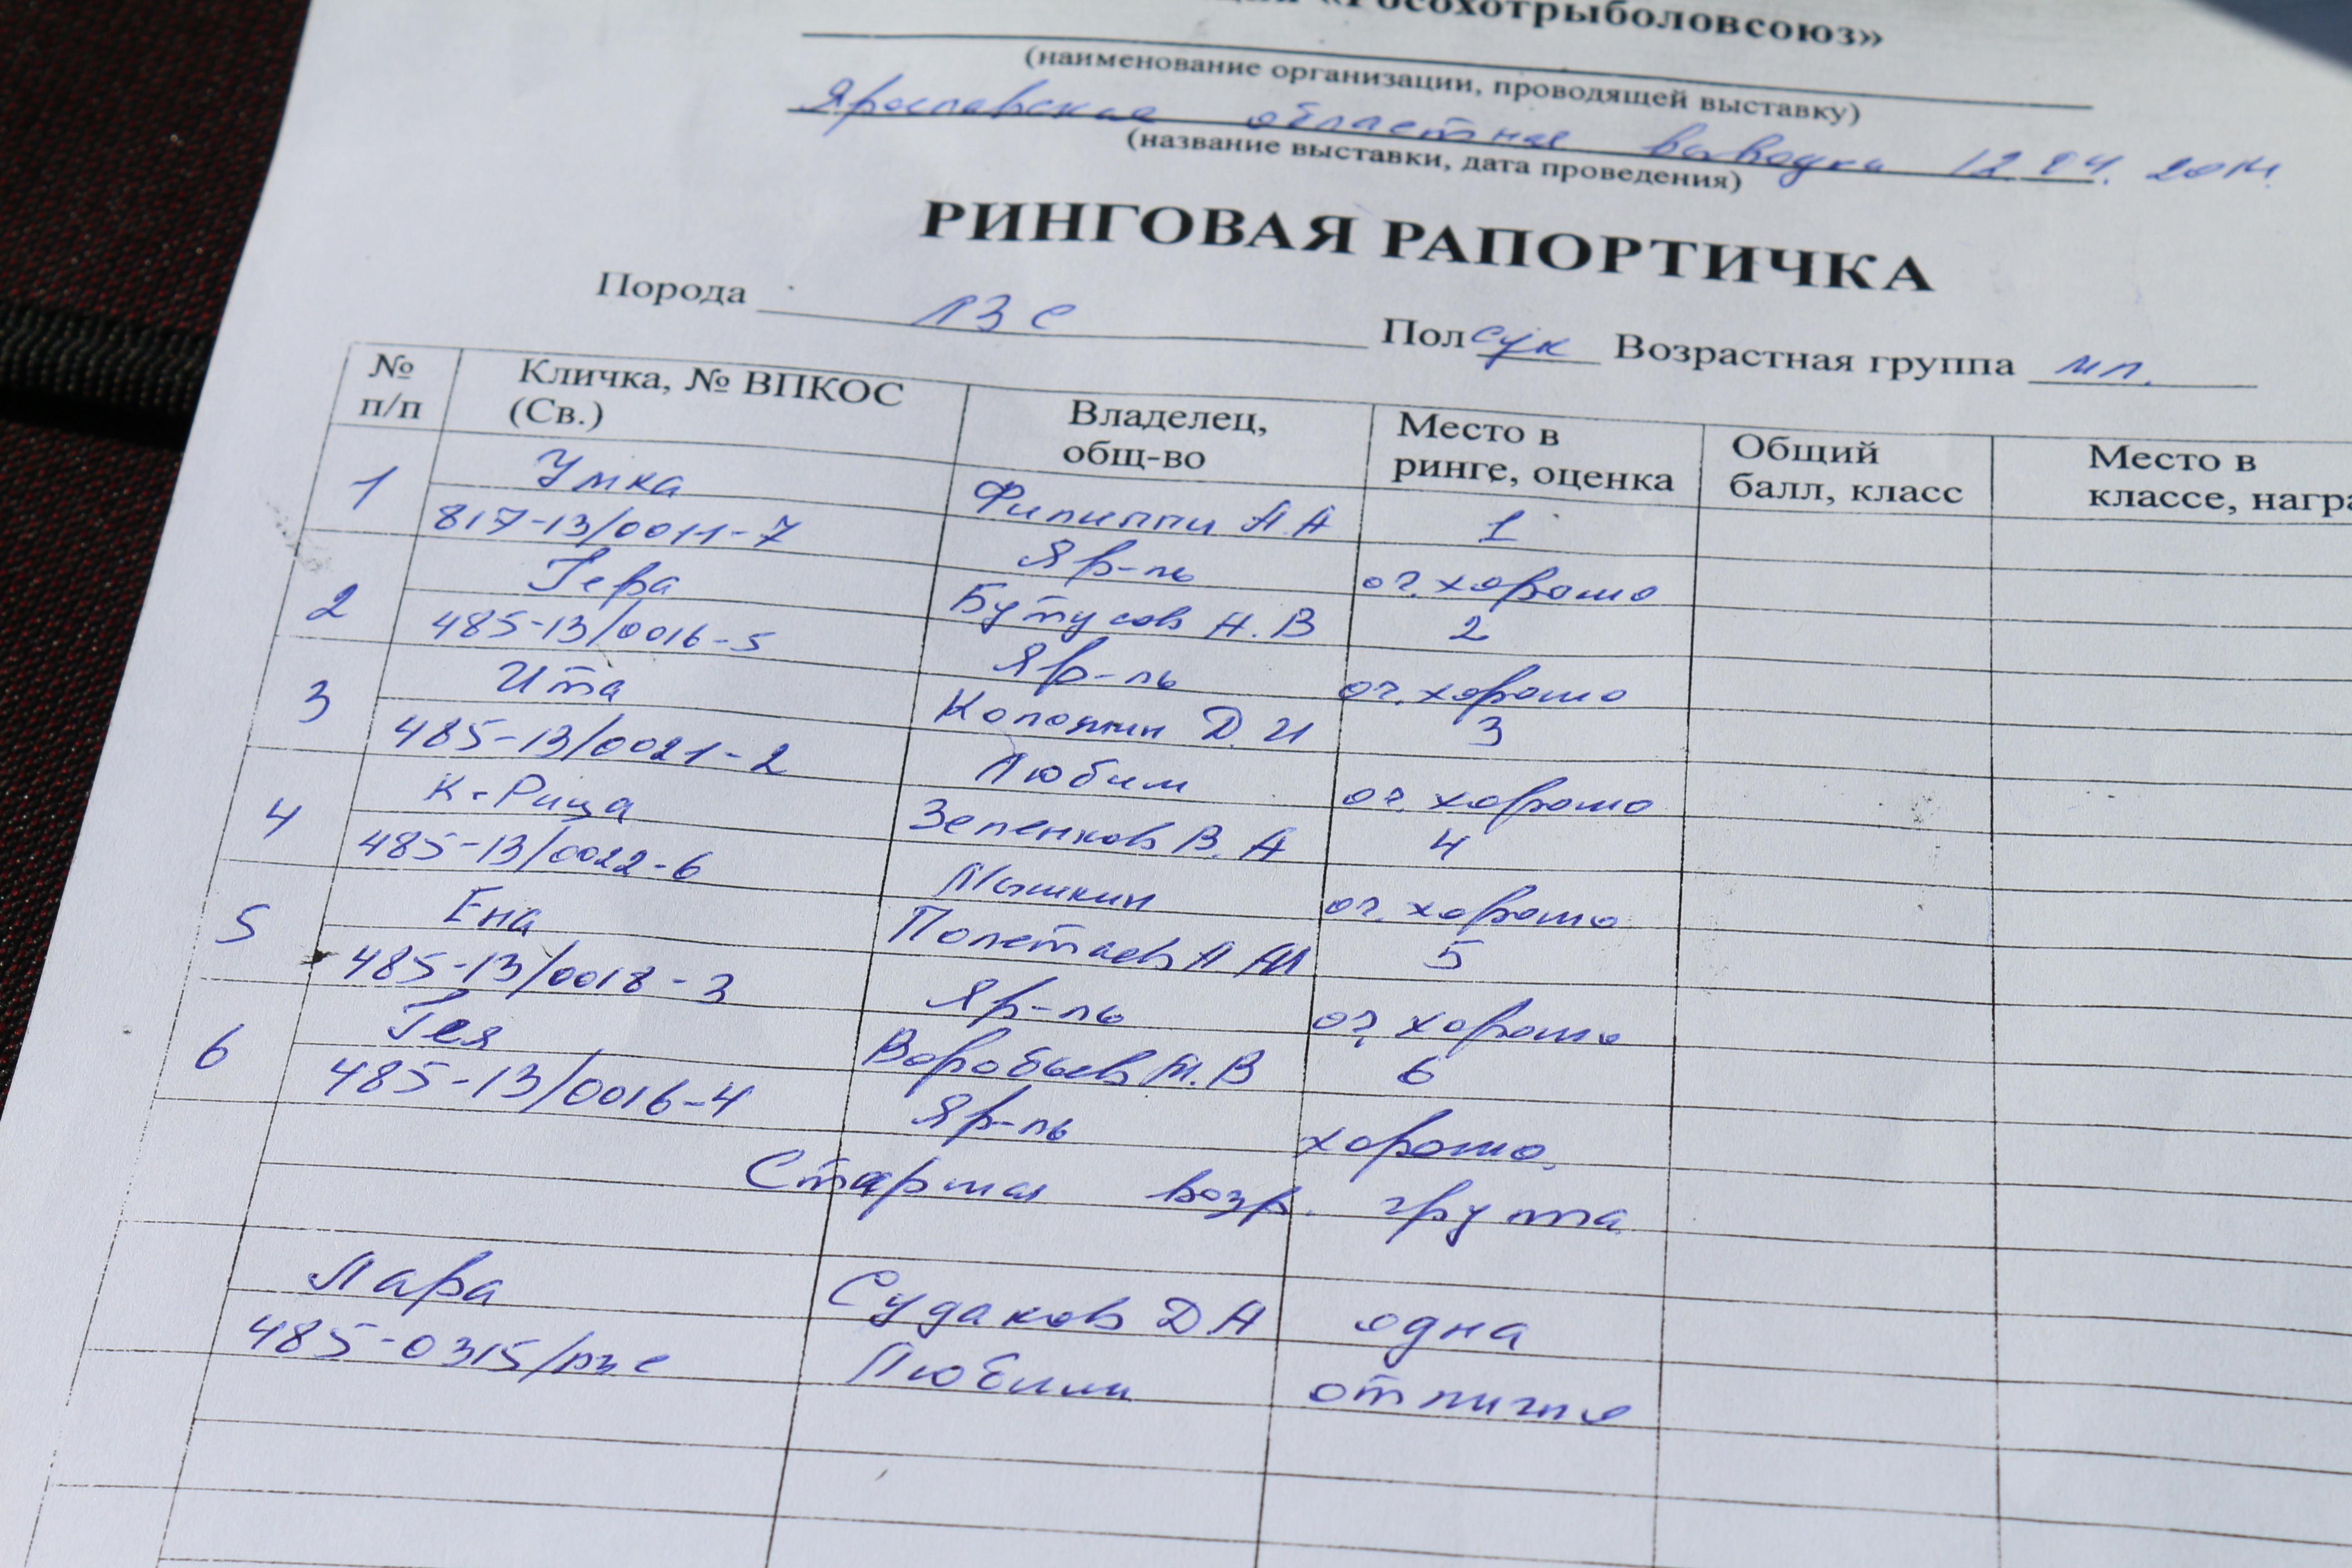 «Росохотрыболовсоюз»
(наименование организации, проводящей выставку)
Ярославская областная выводка 12.04.2014.
(название выставки, дата проведения)
РИНГОВАЯ РАПОРТИЧКА
Порода ЛЗС Пол сук Возрастная группа мл.
№ п/п Кличка, № ВПКОС (Св.) Владелец, общ-во Место в ринге, оценка Общий балл, класс Место в классе,
1 Умка Филиппи А.А 1
817-13/0011-7 Яр-ль оч. хорошо
2 Гера Бутусов Н.В 2
485-13/0016-5 Яр-ль оч. хорошо
3 Ита Д.И 3
485-13/0021-2 Любим оч. хорошо
4 К-Рица Зеленков В.А 4
485-13/0022-6 Мышкин оч. хорошо
5 Ена Полетаев 5
485-13/0018-3 Яр-ль оч. хорошо
6 Гея Воробьев М.В 6
485-13/0016-4 Яр-ль хорошо.
Старшая возр. группа
Лара Судаков Д А одна
485-0315/лзс Любим отлично